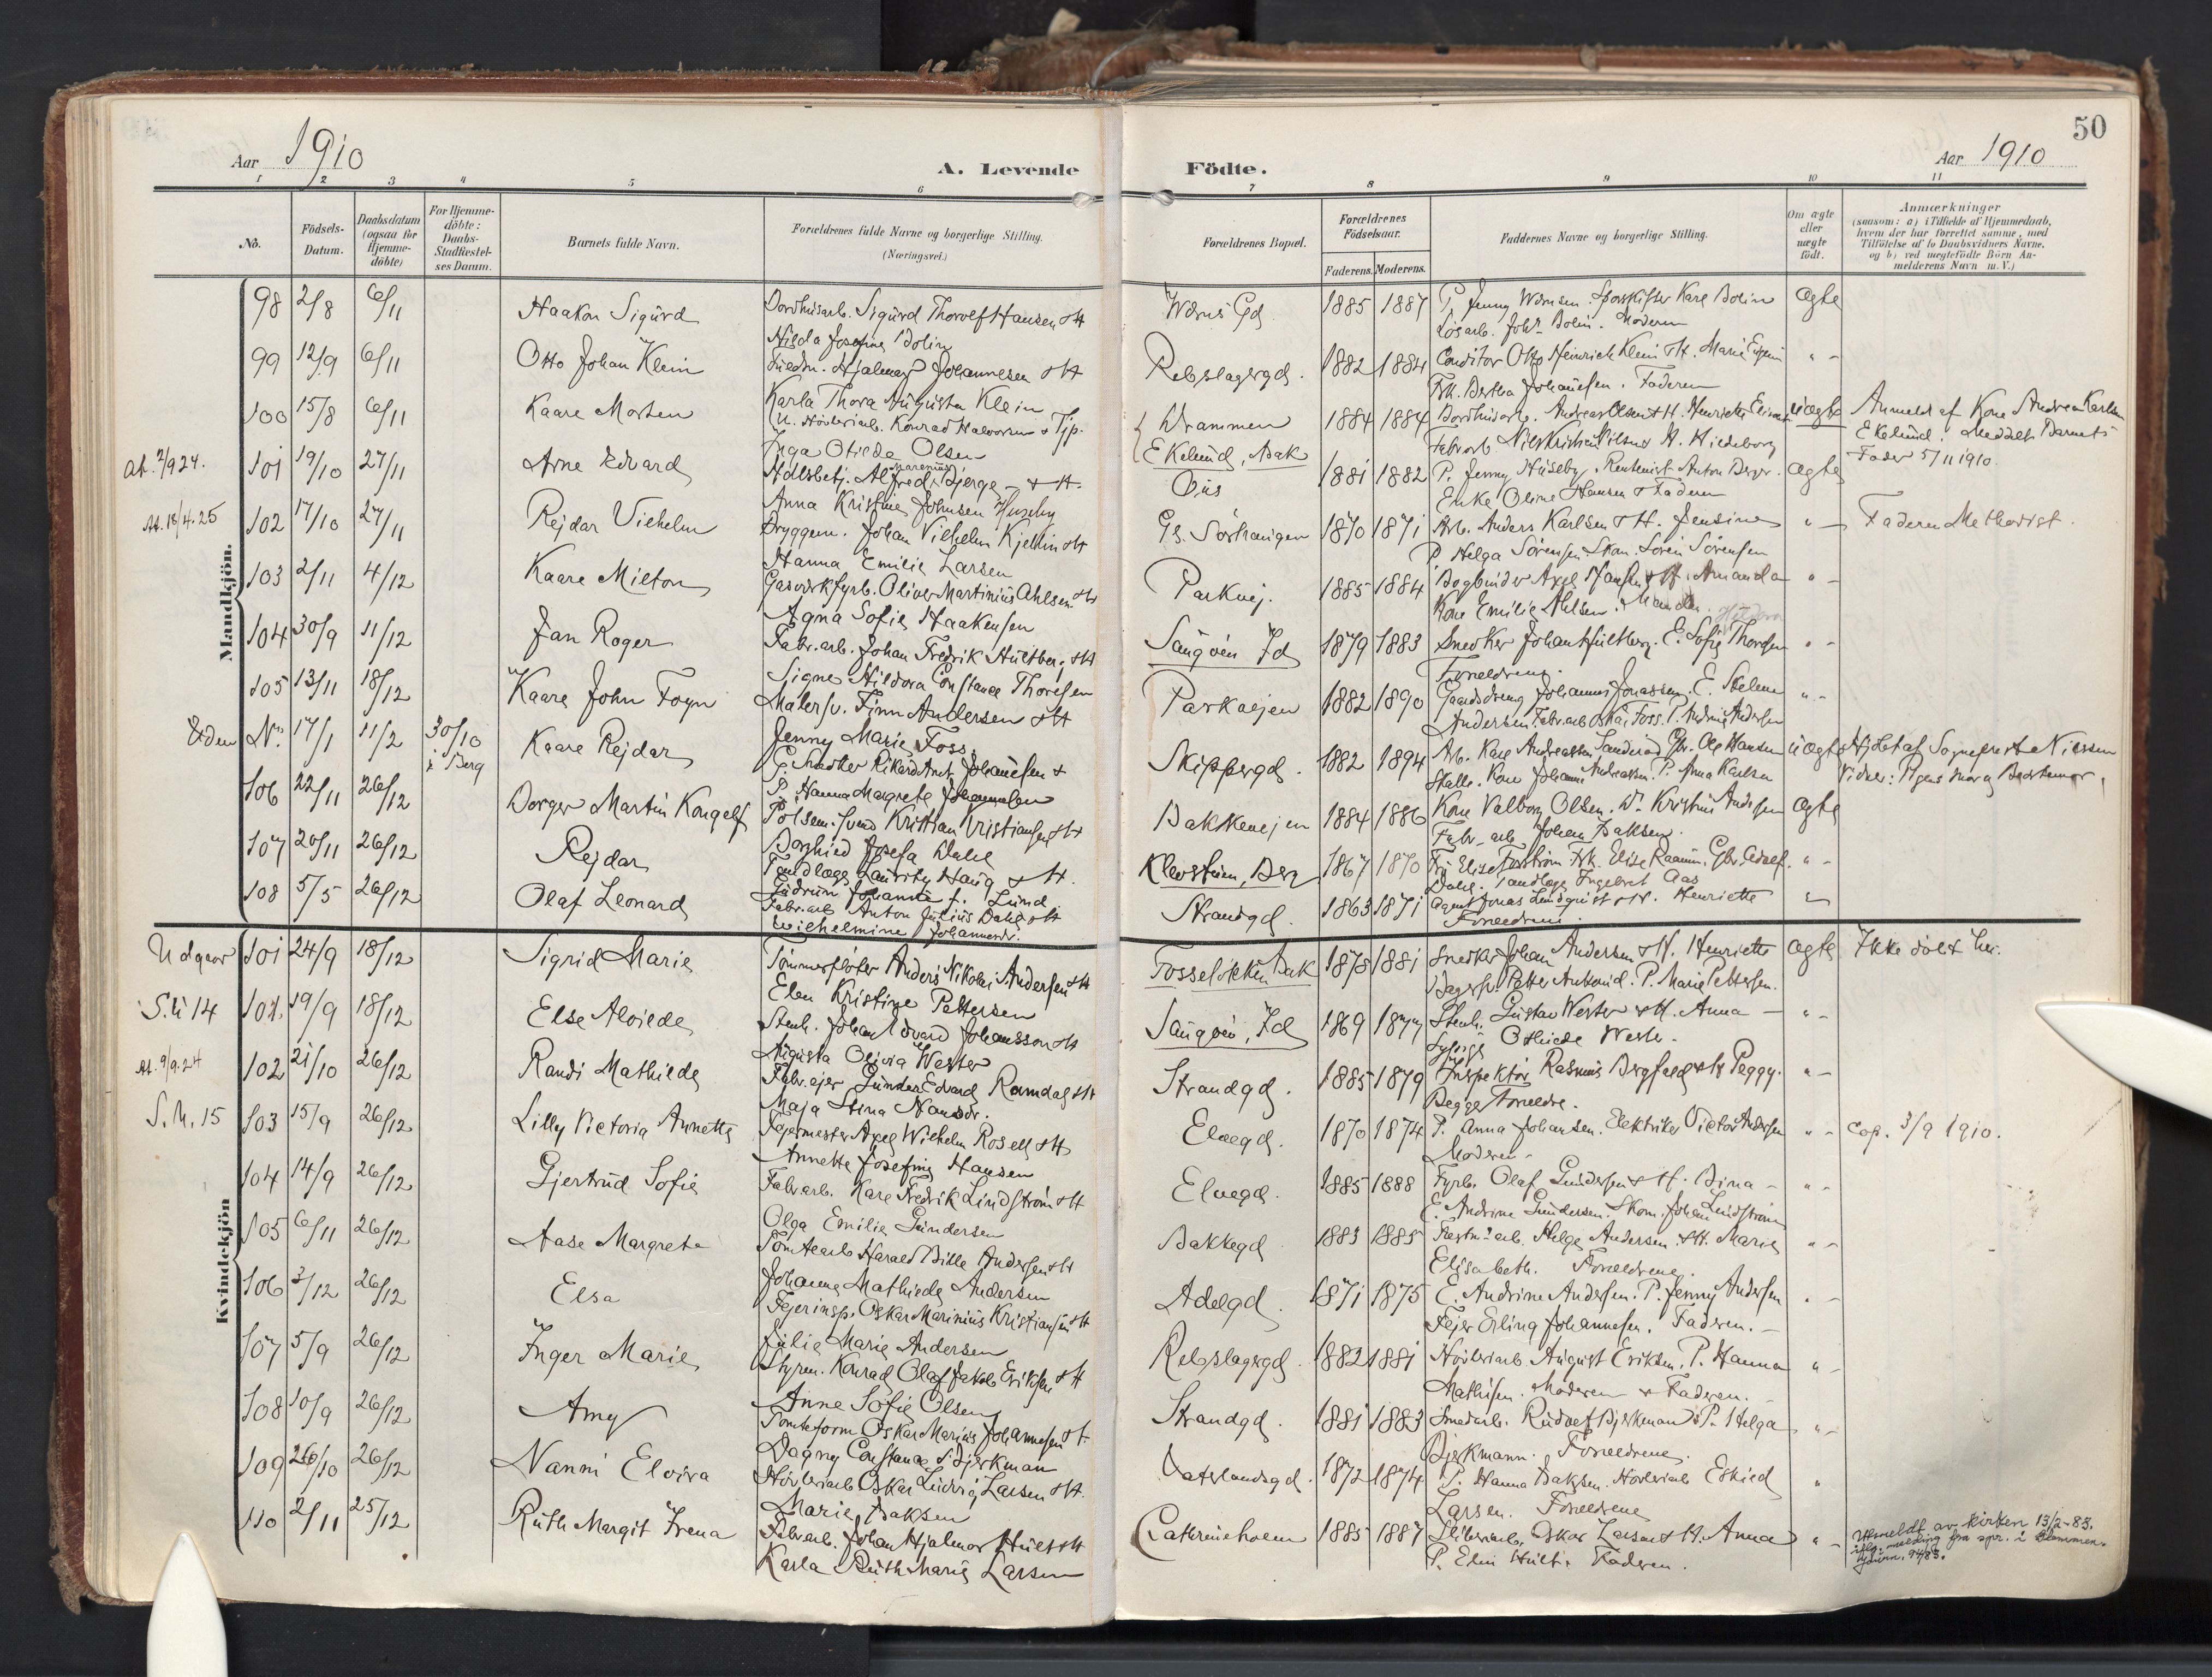 50
Aar 1910
A. Levende
Födte.
Aar 1910
1 2 3 4 5 6 7 8 9 10 11
No.
Födsels-Datum.
Daabsdatum (ogsaa for Hjemme-döbte)
For Hjemme-döbte: Daabs-Stadfæstel-ses Datum.
Barnets fulde Navn.
Forældrenes fulde Navne og borgerlige Stilling.
(Næringsvei.)
Forældrenes Bopæl.
Forældrenes Födselsaar.
Faderens. Moderens.
Faddernes Navne og borgerlige Stilling.
Om ægte eller uægte födt.
Anmærkninger
(saasom: a) i Tilfælde af Hjemmedaab,
hvem der har forrettet samme, med
Tilföielse af to Daabsvidners Navne,
og b) ved uægtefödte Börn An-
melderens Navn m. V.)
Mandkjön.
98 2/8 6/11 Haakon Sigurd
Sigurd Thorolf Hansen & H
Hilda Josefine Bolin
1885 1887 P. Jenny
Karl Bolin ægte
Moderen
99 12/9 6/11 Otto Johan Klein
Hjalmar Johannesen & H
Karla Thora Augusta Klein
Rebslagergd. 1882 1884 Conditor Otto Heinrich Klein & H. Marie " -
Frk. Bertha Johannesen. Faderen
100 15/8 6/11 Kaare Morten
U. Høvleriarb. Konrad Halvorsen & Pip.
Inga Otilde Olsen
Drammen
Ekelund, Bak
1884 1884 Andreas Olsen & H. Henriette uægte
Anmeldt af Kone Andrea Karlsen
Ekelund. Meddelt Barnets
Fader 5/11 1910.
At. 2/9 24. 101 19/10 27/11 Arne Edvard
Alfred Bjerge & H.
Anna Kristine Johnsen Huseby
Øus 1881 1882 P. Jenny Huseby. Rentenist Anton Berger. ægte
Enke Oline Hansen & Faderen
At. 18/4. 25 102 17/10 27/11 Rejdar Vilhelm
Bryggem. Johan Vilhelm Kjellin & H
Hanna Emilie Larsen
1870 1871 Arb. Anders Karlsen & H. Jensine " -
P. Helga Sörensen. Skom. Sören Sörensen
Faderen Methodist.
103 2/11 4/12 Kaare Milton
Gasværkfyrb. Oliver Martinius Ahlsen & H
Agna Sofie Haakensen
Parkvej. 1885 1884 Bogbinder Axel Hansen & H. Amanda " -
Kone Emilie Ahlsen.
104 30/9 11/12 Jan Roger
Fabr.arb. Johan Fredrik Hultberg & H
Signe Hildora Constance Thoresen
Saugöen Id 1879 1883 Snedker Johan Hultberg. E. Sofie Thoresen " -
Forældrene.
105 13/11 18/12 Kaare John Foyn
Malersv. Finn Andersen & H
Jenny Marie Foss.
Parkvejen 1882 1890 Gaardsdreng Johannes Jonassen. E. Helene " -
Andersen. Fabr.arb. Oskar Foss. P. Andrine Andersen
Uden No. 17/1 11/2 30/10 i Berg Kaare Rejdar
E. Snedker Rikard Amt. Johannesen &
P. Hanna Margrete Johannesen
Skippergd. 1882 1894 Arb. Karl Andreassen Sanderöd. Gbr. Ole Hansen uægte
Kone Johanne Andreassen. P. Anna Karlsen
Hjdbt af Sogneprest Nilssen
106 22/11 26/12 Borger Martin Kongelf
Pölsem. Svend Kristian Kristiansen & H
Borghild Josefa Dahl
Bakkevejen 1884 1886 Kone Valborg Olsen. Do. Kristine Andersen ægte
Fabr. arb. Johan Isaksen.
107 20/11 26/12 Rejdar
Tandlæge Lauritz Haug & H.
Gudrun Johanne f. Lund
Berg 1867 1870 Frk. Elise Raanum. " -
Tandlæge Ingebret Aas
108 5/5 26/12 Olaf Leonard
Fabr.arb. Anton Julius Dahl & H
Wilhelmine Johannesdr.
Strandgd. 1863 1871 Agent Jonas Lundquist & H. Henriette
Forældrene.
Kvindekjön
Udgaar 101 24/9 18/12 Sigrid Marie
Tömmerfløter Anders Nikolai Andersen & H
Elen Kristine Pettersen
Bak 1878 1881 Snedker Johan Andersen & H. Henriette ægte
Petter Antonid. P. Marie Pettersen.
Ikke döbt her.
S. U 14 101. 19/9 18/12 Else Alvilde
Stenh. Johan Edvard Johansson & H
Augusta Olivia Wester
Saugöen, Id 1869 1877 Stenh. Gustav Wester & H. Anna - " -
Othilde Wester.
At. 9/9. 24 102 21/10 26/12 Randi Mathilde
Fabr.ejer Gunder Edvard Ramdal & H
Maja Stina Nansdr.
Strandgd. 1885 1879 Inspektör Rasmus Bergfald & H Peggy. " -
Begge Forældre.
S. U. 15 103 15/9 26/12 Lilly Victoria Annette
Fejermester Axel Wilhelm Rosell & H
Annette Josefine Hansen
Elvegd. 1870 1874 P. Anna Johansen. Elektriker Victor Andersen " -
Moderen.
cop. 3/9 1910.
104 14/9 26/12 Gjertrud Sofie
Fabr.arb. Karl Fredrik Lindström & H
Olga Emilie Gundersen
Elvegd. 1885 1888 Fyrb. Olaf Gundersen & H. Bina - " -
E. Andrine Gundersen. Skom. Johan Lindström
105 6/11 26/12 Aase Margrete
Tomtearb. Harald Bille Andersen & H
Johanne Mathilde Andersen
Bakkegd 1883 1885 Helge Andersen & H. Marie " -
Elisabeth. Forældrene.
106 3/12 26/12 Elsa
Fejerinsp. Oskar Marinius Kristiansen & H
Julie Marie Andersen
Adelgd. 1871 1875 E. Andrine Andersen. P. Jenny Andersen " -
Fejer Erling Johannesen. Faderen. -
107 5/9 26/12 Inger Marie
Styrm. Konrad Olaf Jakob Eriksen & H
Anne Sofie Olsen
Rebslagergd. 1882 1881 Høvleriarb. August Eriksen. P. Hanna " -
Mathisen. Moderen & Faderen. -
108 10/9 26/12 Amy
Tomteform. Oskar Marius Johannesen & H.
Dagny Constance Bjerkman
Strandgd. 1881 1883 Smedarb. Rudolf Bjerkman & P. Helga " -
Bjerkmann. Forældrene.
109 26/10 26/12 Nanni Elvira
Høvleriarb. Oskar Ludvig Larsen & H.
Marie Isaksen
Vaterlandsgd. 1872 1874 P. Hanna Isaksen. Høvleriarb. Eskild "
Larsen. Forældrene
110 2/11 25/12 Ruth Margit Irena
Fabr.arb. Johan Hjalmar Hult & H
Karla Ruth Marie Larsen
Cathrineholm 1885 1887 Sliberiarb. Oskar Larsen & H. Anna " -
P. Elin Hult & Faderen.
Utmeldt av kirken 13/2-85.
iflg. melding fra spr. i Glemmen.
Journ. 94/85.